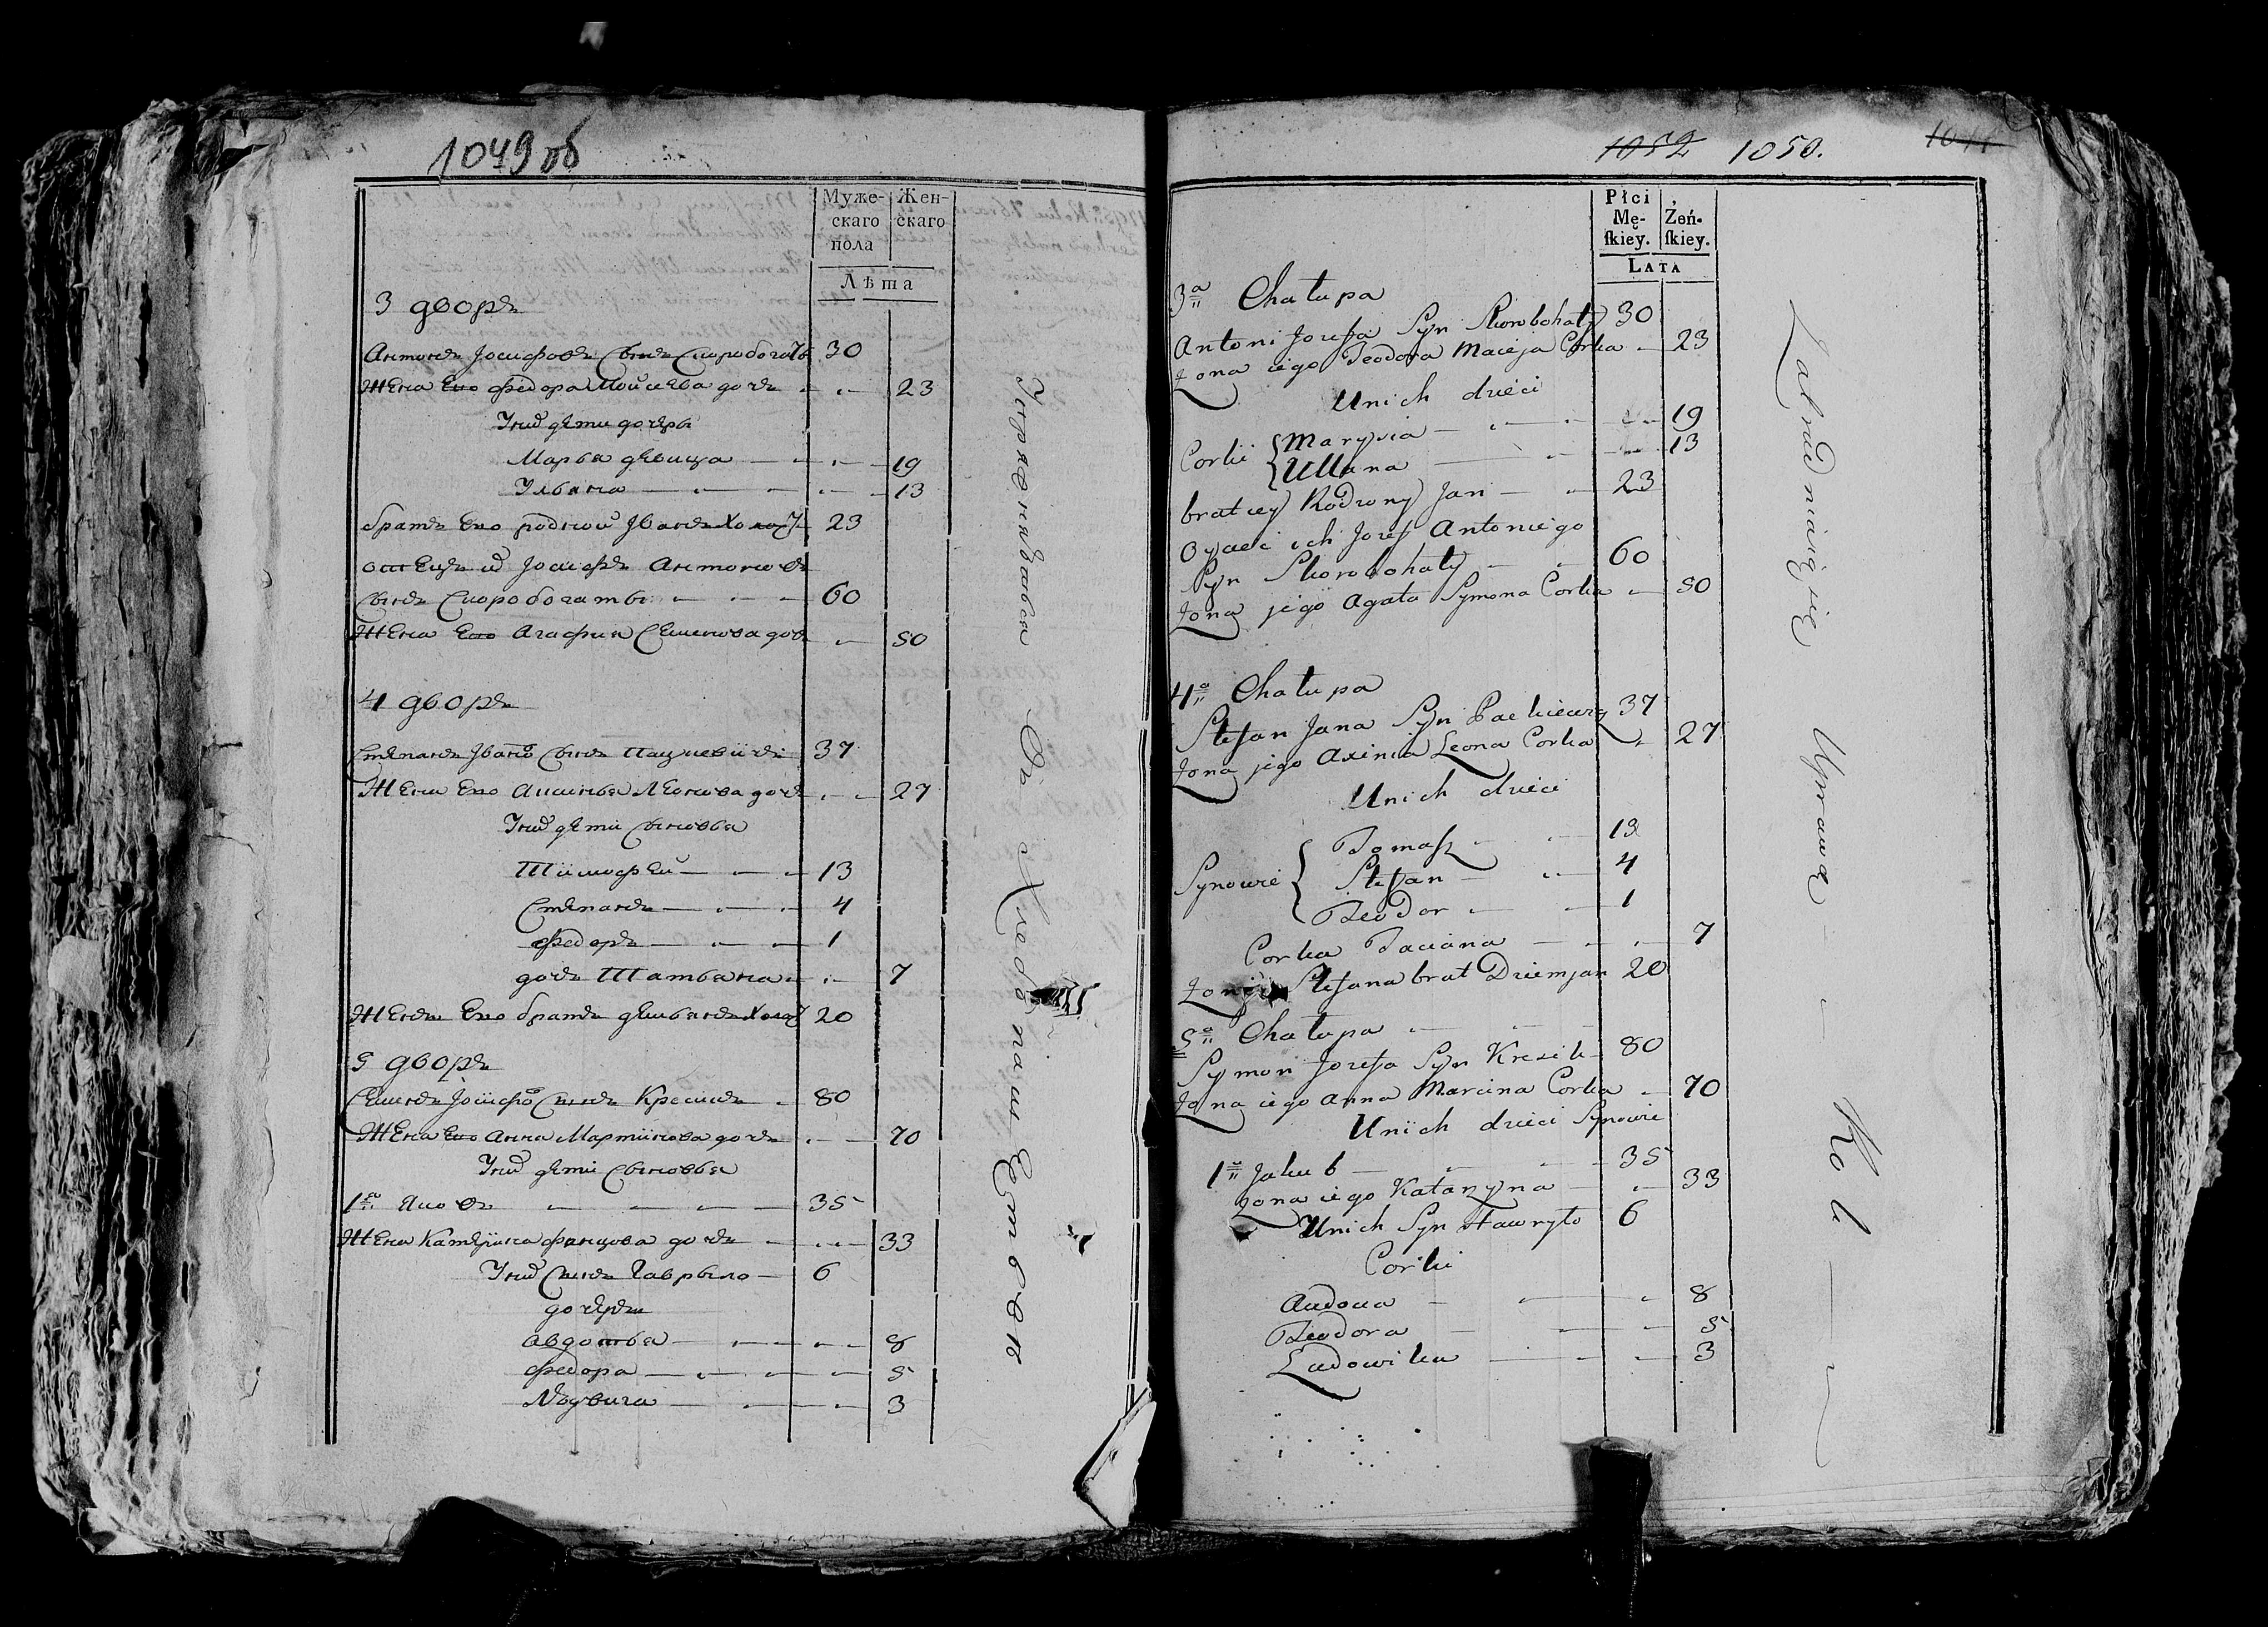 1049 об
Муже-
скаго
пола
Жен-
скаго
Лѣта
3 дворъ
Антонъ Іосифовъ сынъ Скоробогатъ 30
Жена Его федора Моисѣева дочь 23
У них дѣти дочери
Марья дѣвица 19
Ульяна 13
братъ Его родной Иванъ холост 23
отецъ их Іосифъ Антоновъ
сынъ Скоробогаты 60
Жена Его Агафия Семенова дочь 50
4 дворъ
Степанъ Ивано сынъ Пацкевичъ 37
Жена Его Аксинья Леонова дочь 27
У них дѣти сыновья
Тимофей 13
Степанъ 4
федоръ 1
дочь Татьяна 7
Жены Его братъ демьянъ холост 20
5 дворъ
Семенъ Іосифо сынъ Кресикъ 80
Жена Его Анна Мартинова дочь 70
У них дѣти сыновья
1й Яковъ 35
Жена Катерина дочь 33
У них сынъ Гаврыло 6
дочери
Авдотья 8
федора 5
Людвига 3
Упражняваея Въ Хлебопашествъ
1052 1050.
Płci
Mę-
ſkiey.
Żeń-
ſkiey.
LATA
3a Chałupa
Antoni Jozefa Syn Skorobohaty 30
Żona iego Teodora Macieja Corka 23
U nich dzieci
Corki Marysia 19
Ullana 13
brat iey Rodzony Jan 23
Oyciec ich Jozef Antoniego
Syn Skorobohaty 60
Żona jego Agata Symona Corka 50
4a Chałupa
Stefan Jana Syn Packiewicz 37
Żona jego Axinia Leona Corka 27
U nich dzieci
Synowie Tomaſz 13
Stefan 4
Teodor 1
Corka Taciana 7
Żony Stefana brat Dziemjan 20
5a Chałupa
Symon Jozefa Syn Kresik 80
Żona iego Anna Marcina Corka 70
U nich dzieci Synowie
1 Jakub 35
Żona iego Katarzyna 33
U nich Syn Hawryło 6
Corki
Audocia 8
Teodora 5
Ludowika 3
Zatrudniaią się Uprawą Rol